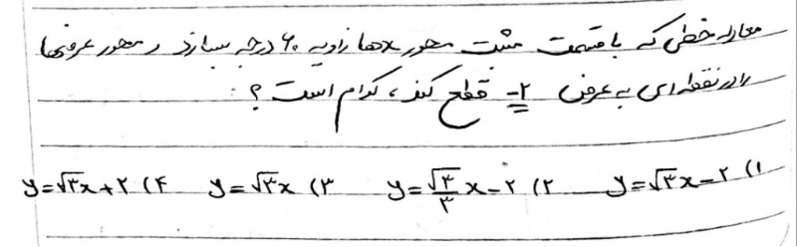 معادله خطی که با قسمت مثبت محور xها زاویه ۶۰ درجه بسازد و محور عرضها
را در نقطه‌ای به عرض ۲- قطع کند، کدام است؟
۱) y=√۳x-۲ ۲) y=√۳/۳ x-۲ ۳) y=√۳x ۴) y=√۳x+۲